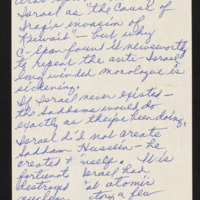 Israel as "the cause of
Iraq's invasion of
Kuwait" — but why
C-Span found it newsworthy
to repeat the anti-Israel
long winded monologue is
sickening.
If Israel never existed —
the Saddams would do
exactly as they're been doing.
Israel did not create
Saddam Hussein — he
created himself. It is
fortunate Israel had
destroyed atomic
a few